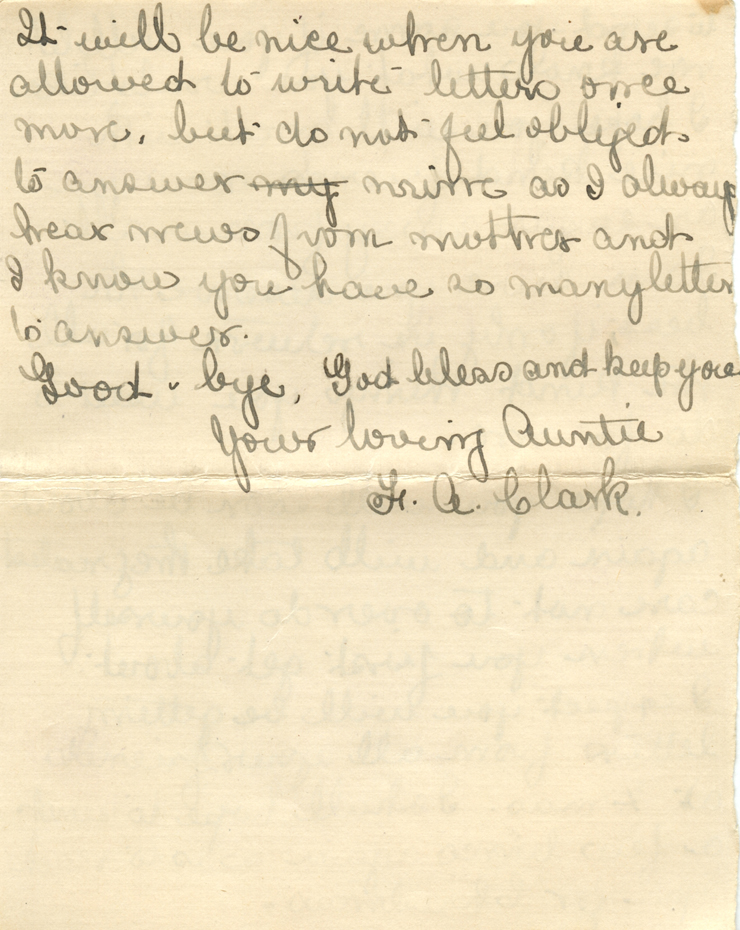 It will be nice when you are
allowed to write letters once
more, but do not feel obliged
to answer my mine as I always
hear news from mother and
I know you have so many letter
to answer.
Good-bye, God bless and keep you
Your loving Auntie
F. A. Clark.